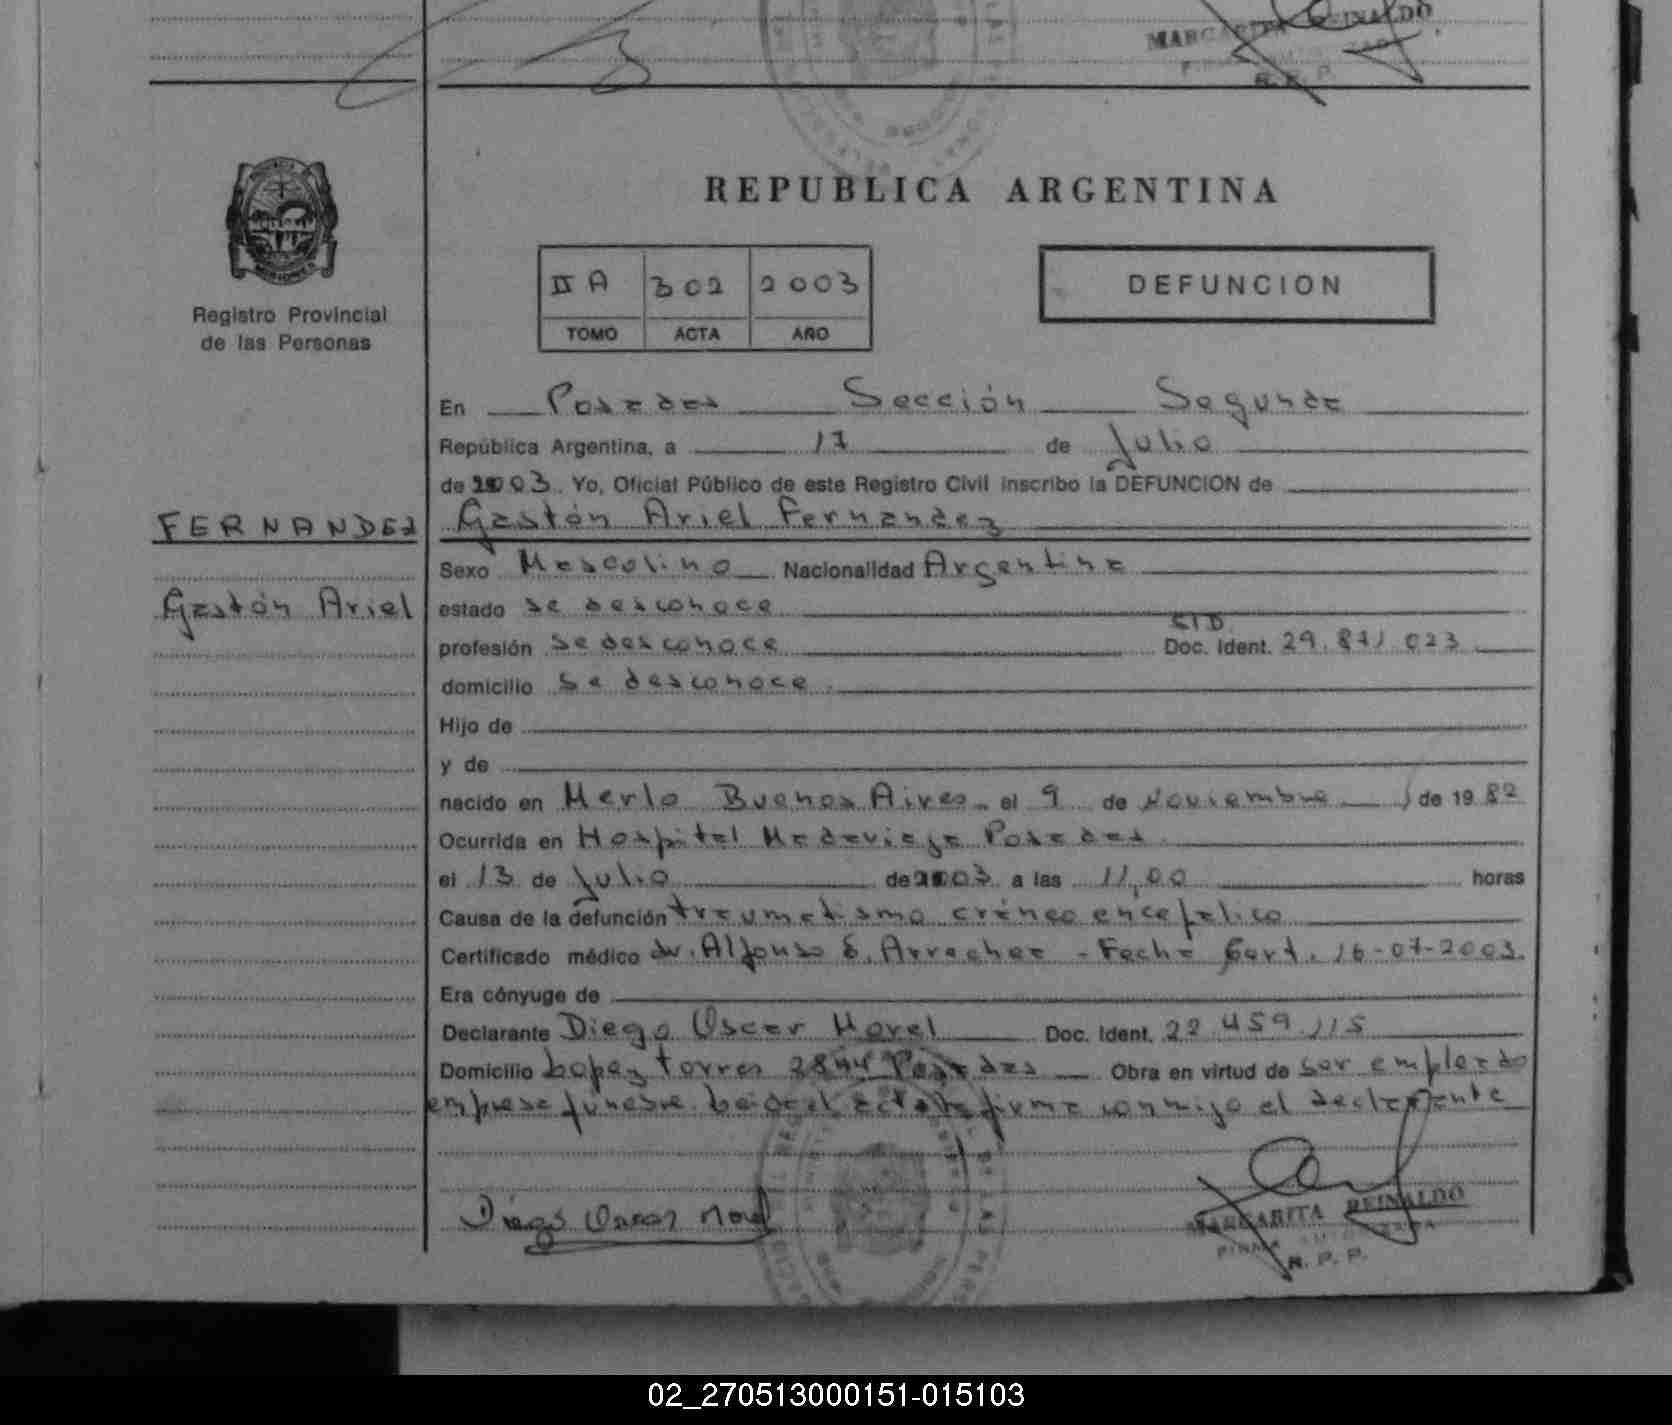 MARGARITA REINALDO
R. P. P.
REPUBLICA ARGENTINA
II A 302 2003
TOMO ACTA AÑO
DEFUNCION
Registro Provincial
de las Personas
En Posadas Sección Segunda
República Argentina, a 17 de Julio
de 2003. Yo, Oficial Público de este Registro Civil inscribo la DEFUNCION de
FERNANDEZ
Gastón Ariel Fernandez
Sexo Masculino Nacionalidad Argentina
Gastón Ariel
estado se desconoce
profesión se desconoce S/D Doc. Ident. 29.871.023
domicilio se desconoce
Hijo de
y de
nacido en Merlo Buenos Aires el 9 de Noviembre de 1982
Ocurrida en Hospital Madariaga Posadas
el 13 de Julio de 2003 a las 11,00 horas
Causa de la defunción traumatismo cráneo encefálico
Certificado médico dr. Alfonso E. Arrechea - Fecha Cert. 16-07-2003.
Era cónyuge de
Declarante Diego Oscar Morel Doc. Ident. 22.459.115
Domicilio Lopez Torres 2844 Posadas Obra en virtud de ser empleado
empresa funebre. Leida el acta la firma conmigo el declarante
Diego Oscar Morel
MARGARITA REINALDO
FIRMA AUTORIZADA
R. P. P.
02_270513000151-015103